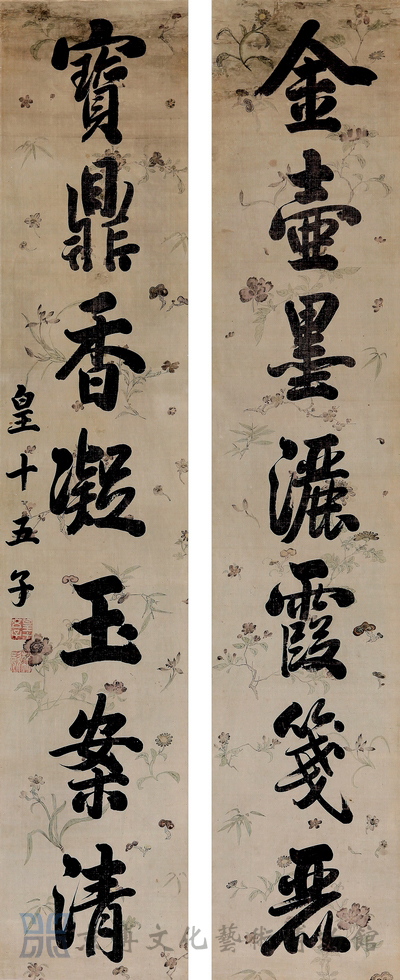 金壺墨灑霞箋麗
寶鼎香凝玉案清
皇十五子
博文化藝術 館